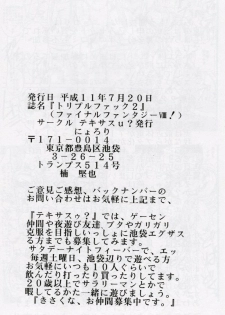 発行日 平成11年7月20日
誌名『トリプルファック2』
(ファイナルファンタジーⅧ!)
サークル テキサスu?発行
にょろり
〒171-0014
東京都豊島区池袋
3-26-25
トランプス514号
楠 堅也
ご意見ご感想、バックナンバーの
お問い合わせはお気軽に上記まで、
『テキサスゥ?』では、ゲーセン
仲間や夜遊び友達、ブタやガリガリ
克服を目指しいっしょに池袋エグザス
る方までも募集してみます。
サタデーナイトフィーバーで、エッ
毎週土曜日、池袋辺りで遊べる方
お気軽にいつも10人ぐらいで
飲んだり打ったり買ったりしてます。
20歳以上でサラリーマンとかで
暇してるかた一緒に遊びましょう。
『きさくな、お仲間募集中です。』